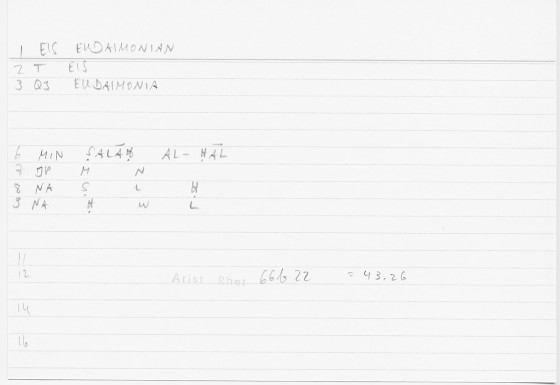 1 EIS EUDAIMONIAN
2 T EIS
3 QS EUDAIMONIA
6 MIN ṢALĀḤ AL-ḤĀL
7 OP M N
8 NA Ṣ L Ḥ
9 NA Ḥ W L
11
12 Arist Rhet 66b22 = 43.26
14
16